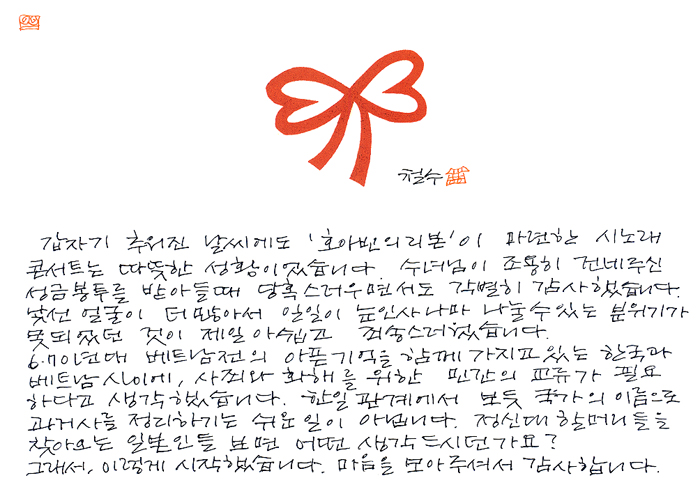 철수
갑자기 추워진 날씨에도 '호아빈의리본'이 마련한 시노래
콘서트는 따뜻한 성황이었습니다. 수녀님이 조용히 건네주신
성금봉투를 받아들때 당혹스러우면서도 각별히 감사했습니다.
낯선 얼굴이 더 많아서 일일이 눈인사나마 나눌수 있는 분위기가
못되었던 것이 제일 아쉽고 죄송스러웠습니다.
6·70년대 베트남전의 아픈기억을 함께 가지고 있는 한국과
베트남 사이에, 사죄와 화해를 위한 민간의 교류가 필요
하다고 생각했습니다. 한일 관계에서 보듯 국가의 이름으로
과거사를 정리하기는 쉬운 일이 아닙니다. 정신대 할머니들을
찾아오는 일본인들 보면 어떤 생각 드시던가요?
그래서, 이렇게 시작했습니다. 마음을 모아주셔서 감사합니다.